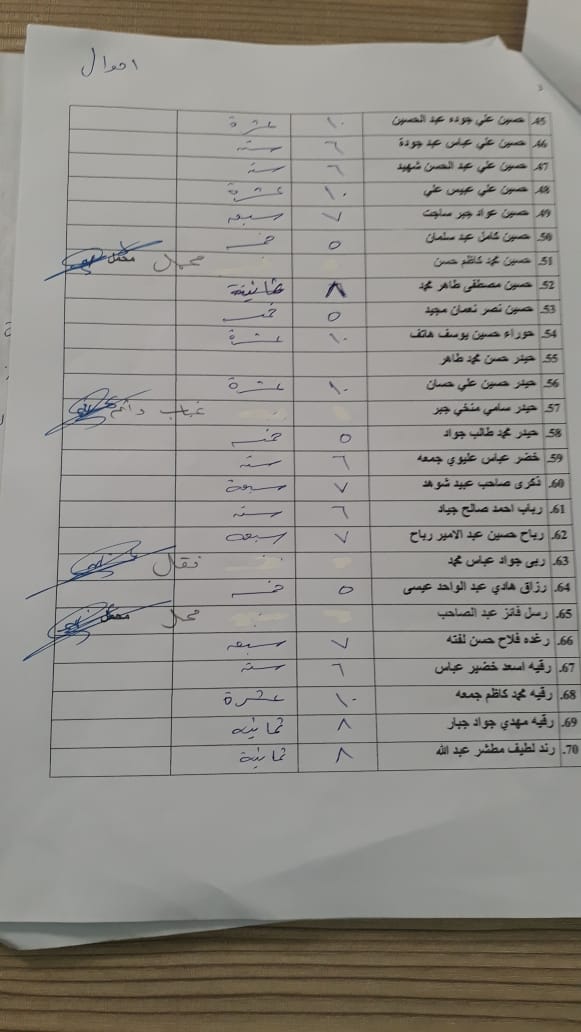 احوال
45. حسين علي جوده عبد الحسين ١٠ عشرة
46. حسين علي عباس عبد جودة ٦ ستة
47. حسين علي عبد الحسن شهيد ٦ ستة
48. حسين علي عبيس علي ١٠ عشرة
49. حسين عواد جبر ساجت ٧ سبعه
50. حسين كامل عبد سلمان ٥ خمسه
51. حسين محمد كاظم حسن محمل
52. حسين مصطفى طاهر محمد ٨ ثمانية
53. حسين نصر نعمان مجيد ٥ خمسه
54. حوراء حسين يوسف هاتف ١٠ عشرة
55. حيدر حسن محمد طاهر
56. حيدر حسين علي حسان ١٠ عشرة
57. حيدر سامي منخي جبر غياب دائم
58. حيدر محمد طالب جواد ٥ خمسه
59. خضر عباس عليوي جمعه ٦ ستة
60. ذكرى صاحب عبيد شوهد ٧ سبعة
61. رباب احمد صالح جياد ٦ ستة
62. رباح حسين عبد الامير رباح ٧ سبعه
63. ربى جواد عباس محمد نقال
64. رزاق هادي عبد الواحد عيسى ٥ خمسه
65. رسل فائز عبد الصاحب محمل
66. رغده فلاح حسن لفته ٧ سبعه
67. رقيه اسعد خضير عباس ٦ ستة
68. رقيه محمد كاظم جمعه ١٠ عشرة
69. رقيه مهدي جواد جبار ٨ ثمانيه
70. رند لطيف مطشر عبد الله ٨ ثمانية